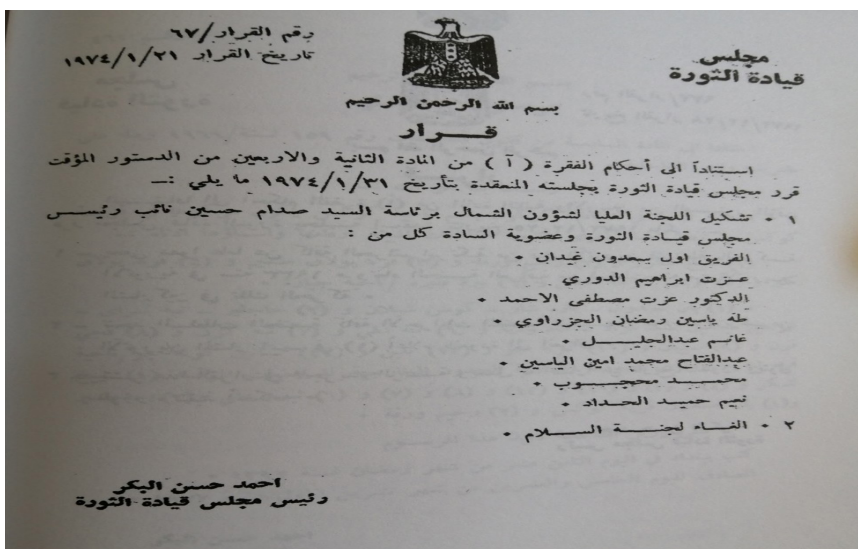 مجلس
قيادة الثورة
رقم القرار/ ٦٧
تاريخ القرار ١٩٧٤/١/٢١
بسم الله الرحمن الرحيم
قرار
إستناداً الى أحكام الفقرة ( آ ) من المادة الثانية والاربعين من الدستور المؤقت
قرر مجلس قيادة الثورة بجلسته المنعقدة بتأريخ ١٩٧٤/١/٣١ ما يلي :ـ
١ • تشكيل اللجنة العليا لشؤون الشمال برئاسة السيد صدام حسين نائب رئيس
مجلس قيادة الثورة وعضوية السادة كل من :
الفريق اول سعدون غيدان •
عزت ابراهيم الدوري
الدكتور عزت مصطفى الاحمد •
طه ياسين رمضان الجزراوي •
غانم عبدالجليل •
عبدالفتاح محمد امين الياسين •
محمد محجوب •
نعيم حميد الحداد •
٢ • الغاء لجنة السلام •
احمد حسن البكر
رئيس مجلس قيادة الثورة